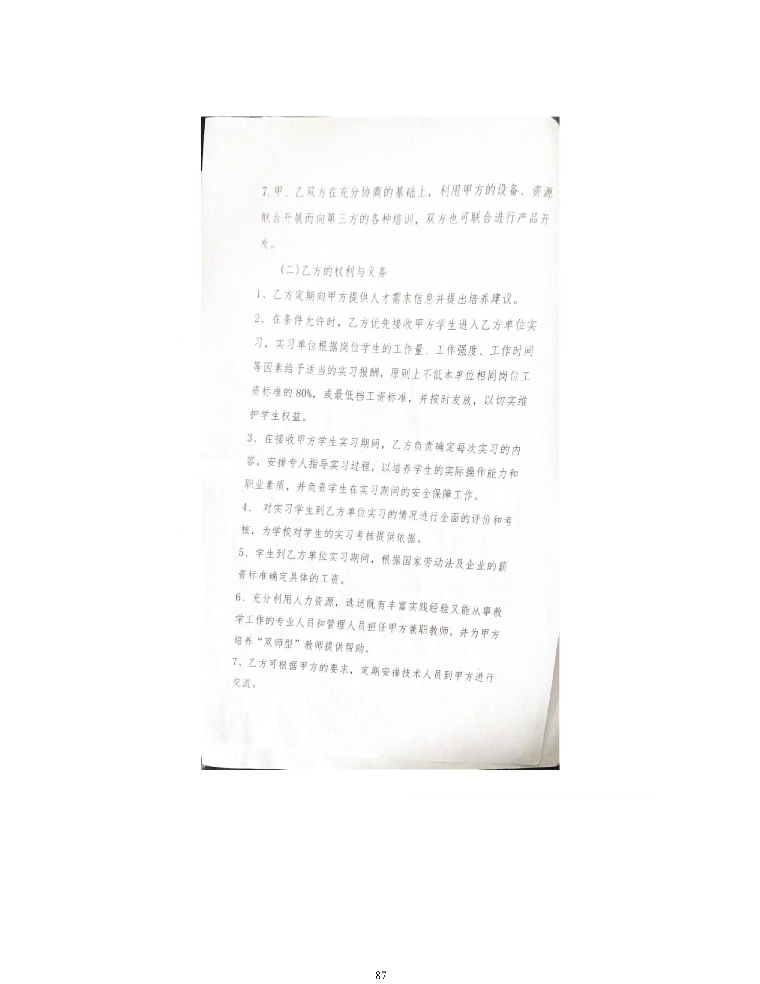 7.甲、乙双方在充分协商的基础上，利用甲方的设备、资源
联合开展面向第三方的各种培训，双方也可联合进行产品开
发。
(二)乙方的权利与义务
1、乙方定期向甲方提供人才需求信息并提出培养建议。
2、在条件允许时，乙方优先接收甲方学生进入乙方单位实
习，实习单位根据岗位学生的工作量、工作强度、工作时间
等因素给予适当的实习报酬，原则上不低本单位相同岗位工
资标准的80%，或最低档工资标准，并按时发放，以切实维
护学生权益。
3、在接收甲方学生实习期间，乙方负责确定每次实习的内
容，安排专人指导实习过程，以培养学生的实际操作能力和
职业素质，并负责学生在实习期间的安全保障工作。
4、 对实习学生到乙方单位实习的情况进行全面的评价和考
核，为学校对学生的实习考核提供依据。
5、学生到乙方单位实习期间，根据国家劳动法及企业的薪
资标准确定具体的工资。
6、充分利用人力资源，选送既有丰富实践经验又能从事教
学工作的专业人员和管理人员担任甲方兼职教师，并为甲方
培养“双师型”教师提供帮助。
7、乙方可根据甲方的要求，定期安排技术人员到甲方进行
交流。
87